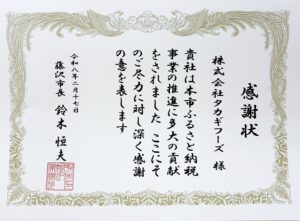 感謝状
株式会社タカギフーズ 様
貴社は本市ふるさと納税
事業の推進に多大の貢献
をされました ここにそ
のご尽力に対し深く感謝
の意を表します
令和八年二月十七日
藤沢市長 鈴木恒夫